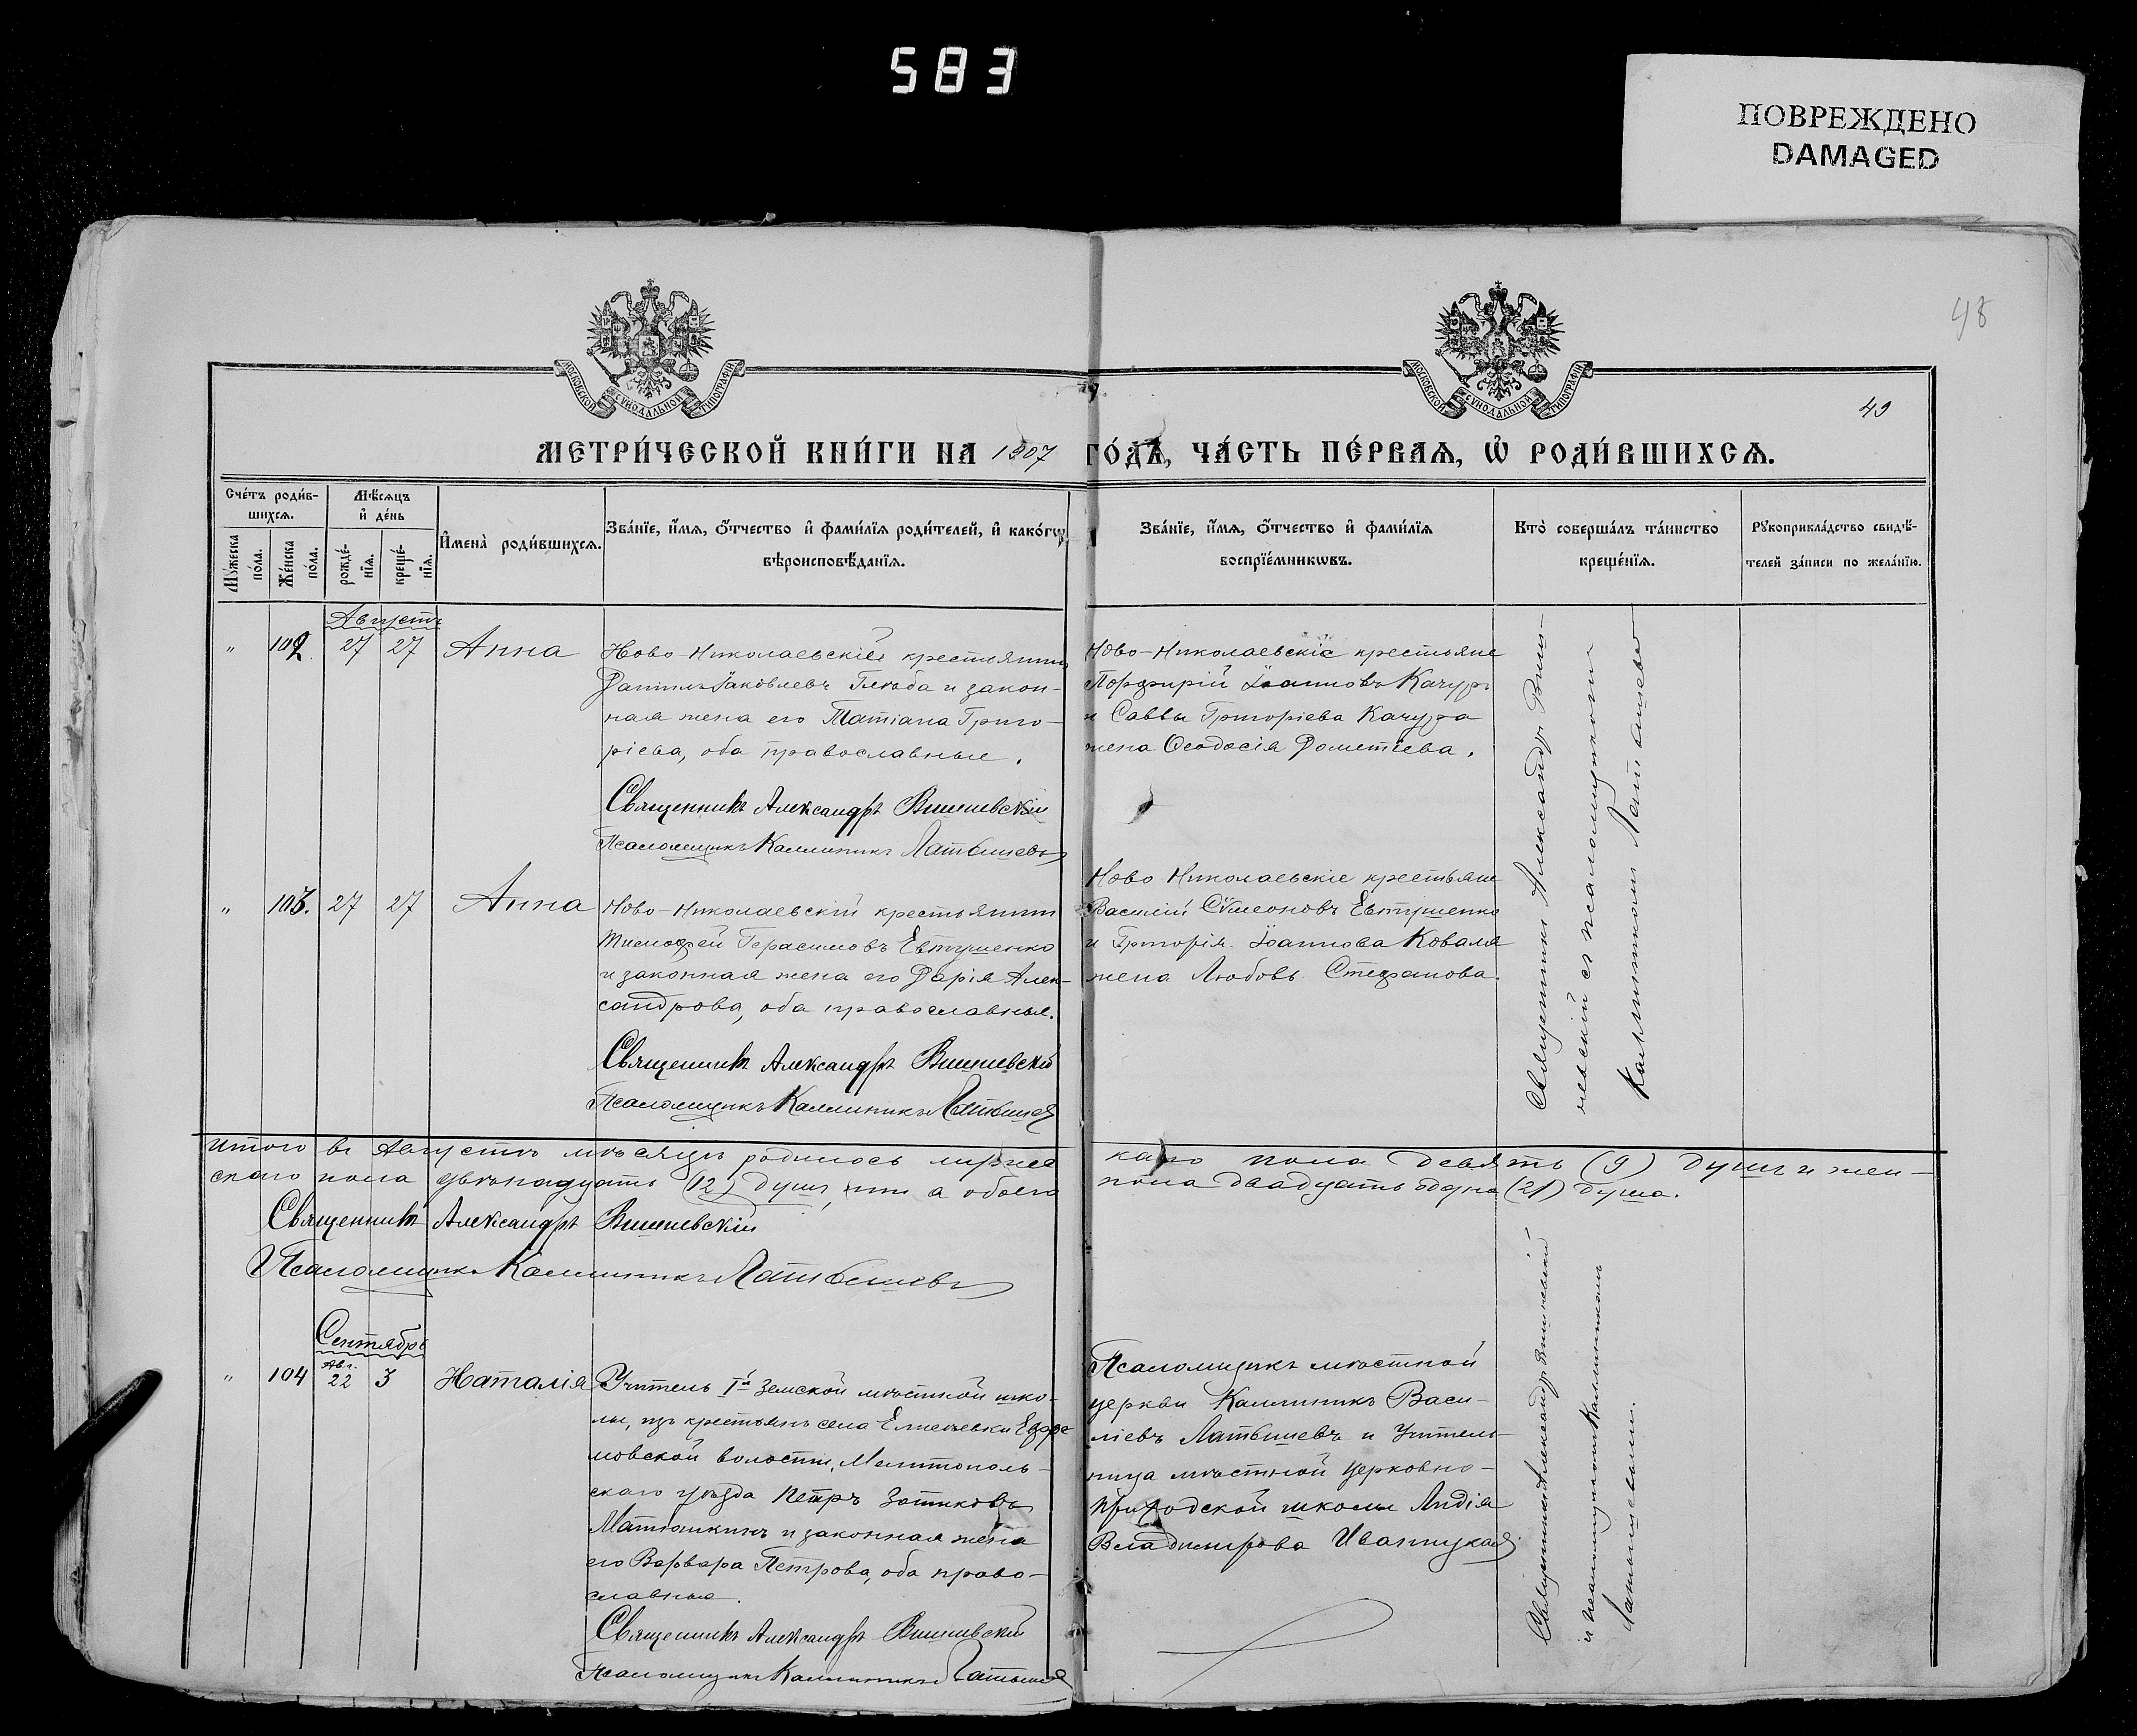 583
ПОВРЕЖДЕНО
DAMAGED
48
МОСКОВСКОЙ СУНОДАЛЬНОЙ ТИПОГРАФІИ
МОСКОВСКОЙ СУНОДАЛЬНОЙ ТИПОГРАФІИ
49
МЕТРИ́ЧЕСКОЙ КНИ́ГИ НА 1907 ГО́ДЪ, ЧА́СТЬ ПЕ́РВАѦ, Ѡ РОДИ́ВШИХСѦ.
Сче́тъ роди́в-
шихсѧ.
Мꙋ́жеска по́ла.
Же́нска по́ла.
Мѣ́сѧцъ
и҆ де́нь
рожде́-
нїѧ.
креще́-
нїѧ.
И҆мена̀ роди́вшихсѧ.
Зва́нїе, и҆́мѧ, ѻ҆́тчество и҆ фами́лїѧ роди́телей, и҆ како́гѡ
вѣроисповѣ́данїѧ.
Зва́нїе, и҆́мѧ, ѻ҆́тчество и҆ фами́лїѧ
воспрїе́мникѡвъ.
Кто̀ соверша́лъ та́инство
креще́нїѧ.
Рꙋкоприкла́дство свидѣ́-
телей за́писи по жела́нїю.
Августъ
" 102. 27 27 Анна
Ново-Николаевскій крестьянинъ
Даніилъ Іаковлевъ Глюба и закон-
ная жена его Татіана Григо-
ріева, оба православные.
Священникъ Александръ Вишневскій
Псаломщикъ Каллиникъ Латышевъ
Ново-Николаевскіе крестьяне
Порфирій Іоанновъ Качуръ
и Саввы Григоріева Качура
жена Ѳеодосія Дометіева.
Священникъ Александръ Виш-
невскій съ псаломщикомъ
Каллиникомъ Латышево
" 103. 27 27 Анна
Ново-Николаевскій крестьянинъ
Тимофей Герасимовъ Евтушенко
и законная жена его Дарія Алек-
сандрова, оба православные.
Священникъ Александръ Вишневскій
Псаломщикъ Каллиникъ Латышев
Ново Николаевскіе крестьяне
Василій Сѵмеоновъ Евтушенко
и Григорія Іоаннова Коваля
жена Любовь Стефанова.
Итого въ Августѣ мѣсяцѣ родилось мужес
каго пола девять (9) душъ и жен-
скаго пола двѣнадцать (12) душъ, а обоего
пола двадцать одна (21) душа.
Священникъ Александръ Вишневскій
Псаломщикъ Каллиникъ Латышевъ
Сентябрь
" 104 Авг. 22 3 Наталія
Учитель 1й Земской мѣстной шко-
лы, изъ крестьянъ села
мовской волости, Мелитополь-
скаго уѣзда Петръ Зотиковъ
Матюшкинъ и законная жена
его Варвара Петрова, оба право-
славные.
Священникъ Александръ Вишневскій
Псаломщикъ Каллиникъ Латышев
Псаломщикъ мѣстной
церкви Каллиникъ Васи-
ліевъ Латышевъ и Учитель-
ница мѣстной Церковно-
приходской школы Лидія
Владимірова Иваницкая.
Священникъ Александръ Вишневскій
и псаломщикомъ Каллиникомъ
Латышевымъ.